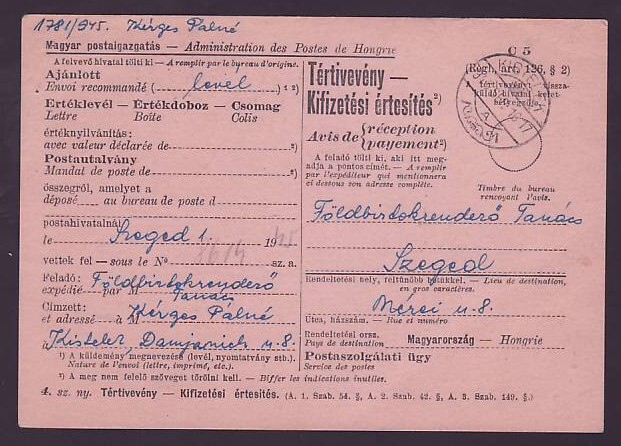 1781/945. Kérges Palné
Magyar postaigazgatás — Administration des Postes de Hongrie
A felvevő hivatal tölti ki — A remplir par le bureau d'origine.
Ajánlott
Envoi recommandé ( levél ) ¹)
Értéklevél — Értékdoboz — Csomag
Lettre Boîte Colis
értéknyilvánítás:
avec valeur déclarée de ²)
Postautalvány
Mandat de poste de ²)
összegről, amelyet a
déposé au bureau de poste d
postahivatalnál
le Szeged 1. 19
vettek fel — sous le Nº sz. a.
Feladó: Földbirtokrendező
expédié par M Tanács
Címzett: Kérges Palné
et adressé à M
à Kistelek, Damjanich u. 8.
¹) A küldemény megnevezése (levél, nyomtatvány stb.).
Nature de l'envoi (lettre, imprimé, etc.).
²) A meg nem felelő szöveget törölni kell. — Biffer les indications inutiles.
4. sz. ny. Tértivevény — Kifizetési értesítés. (A. 1. Szab. 54. §, A. 2. Szab. 42. §, A. 3. Szab. 149. §.)
C 5
(Regl., art. 126, § 2)
Tértivevény —
Kifizetési értesítés ²)
Avis de { réception
payement ²)
A feladó tölti ki, aki itt meg-
adja a pontos címét. — A remplir
par l'expéditeur qui mentionnera
ci dessous son adresse complète.
A tértivevényt vissza-
küldő hivatal kelet-
bélyegzője.
Timbre du bureau
renvoyant l'avis.
Földbirtokrendező Tanács
Szeged
Rendeltetési hely, feltűnőbb betűkkel. — Lieu de destination,
en gros caractères.
Mérei u. 8.
Utca, házszám. — Rue et numéro
Rendeltetési orsz.
Pays de destination Magyarország — Hongrie
Postaszolgálati ügy
Service des postes